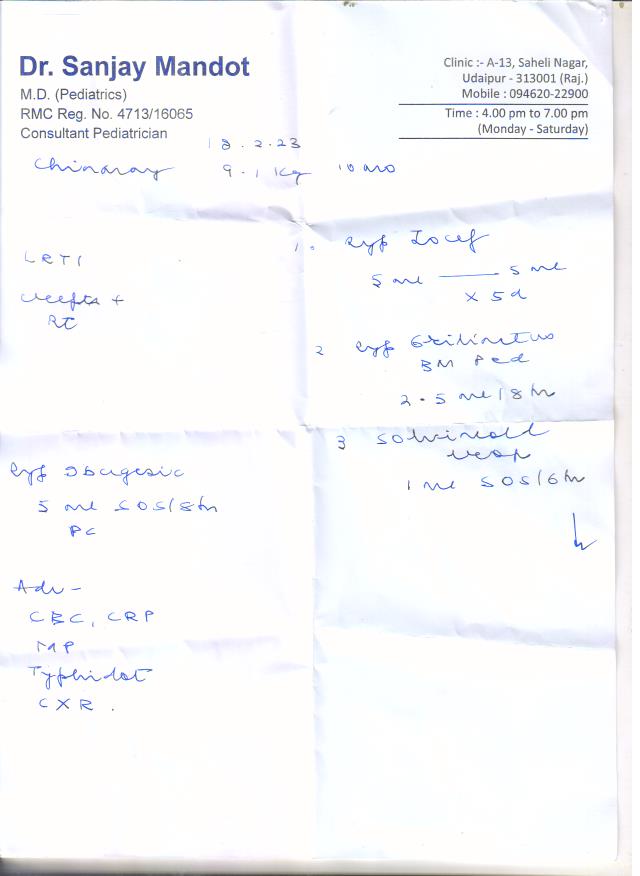 Dr. Sanjay Mandot
M.D. (Pediatrics)
RMC Reg. No. 4713/16065
Consultant Pediatrician
Clinic :- A-13, Saheli Nagar,
Udaipur - 313001 (Raj.)
Mobile : 094620-22900
Time : 4.00 pm to 7.00 pm
(Monday - Saturday)
18.2.23
9.1 Kg 10 mo
LRTI
+
Syp Ibugesic
5 ml SOS/8hr
PC
Adv -
CBC, CRP
MP
Typhidot
CXR.
1. Syp
5 ml — 5 ml
x 5d
2 Syp
BM Ped
2.5 ml/8hr
3
1 ml SOS/6hr